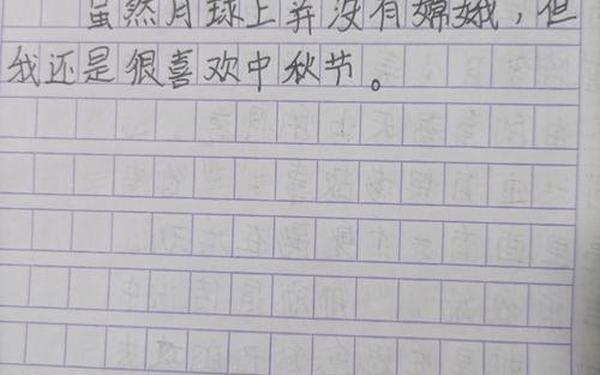 虽然月球上并没有嫦娥，但
我还是很喜欢中秋节。